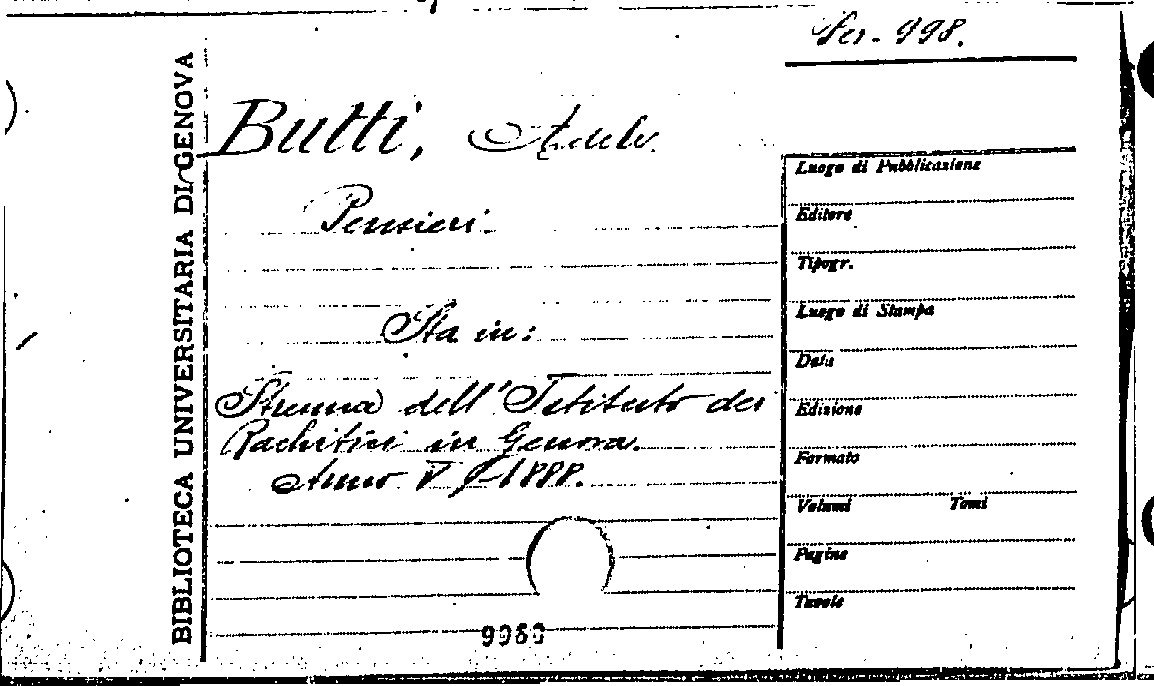 Ser. 998.
BIBLIOTECA UNIVERSITARIA DI GENOVA
Butti, Adele
Pensieri.
Sta in:
Strenna dell'Istituto dei
Rachitici in Genova.
Anno V - 1888.
Luogo di Pubblicazione
Editore
Tipogr.
Luogo di Stampa
Data
Edizione
Formato
Volumi Tomi
Pagine
Tavole